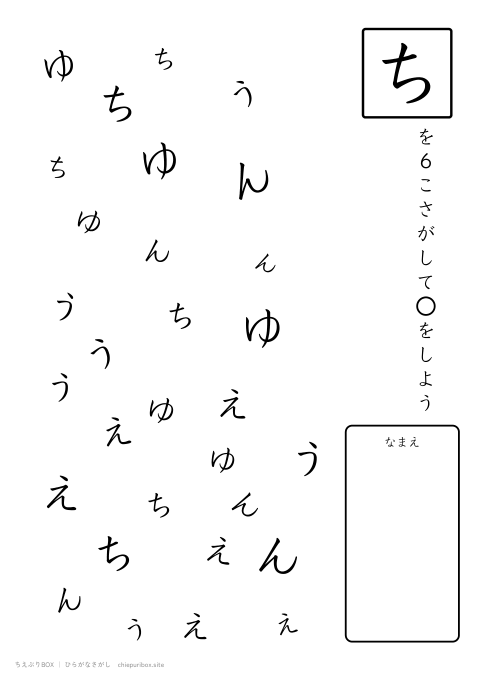 ち
を6こさがして〇をしよう
なまえ
ゆ
ち
ち
う
ち
ゆ
ん
ゆ
ん
ん
う
ち
ゆ
う
う
ゆ
え
え
ゆ
う
え
ち
ん
ち
え
ん
ん
う
え
え
ちえぷりBOX | ひらがなさがし chiepuribox.site